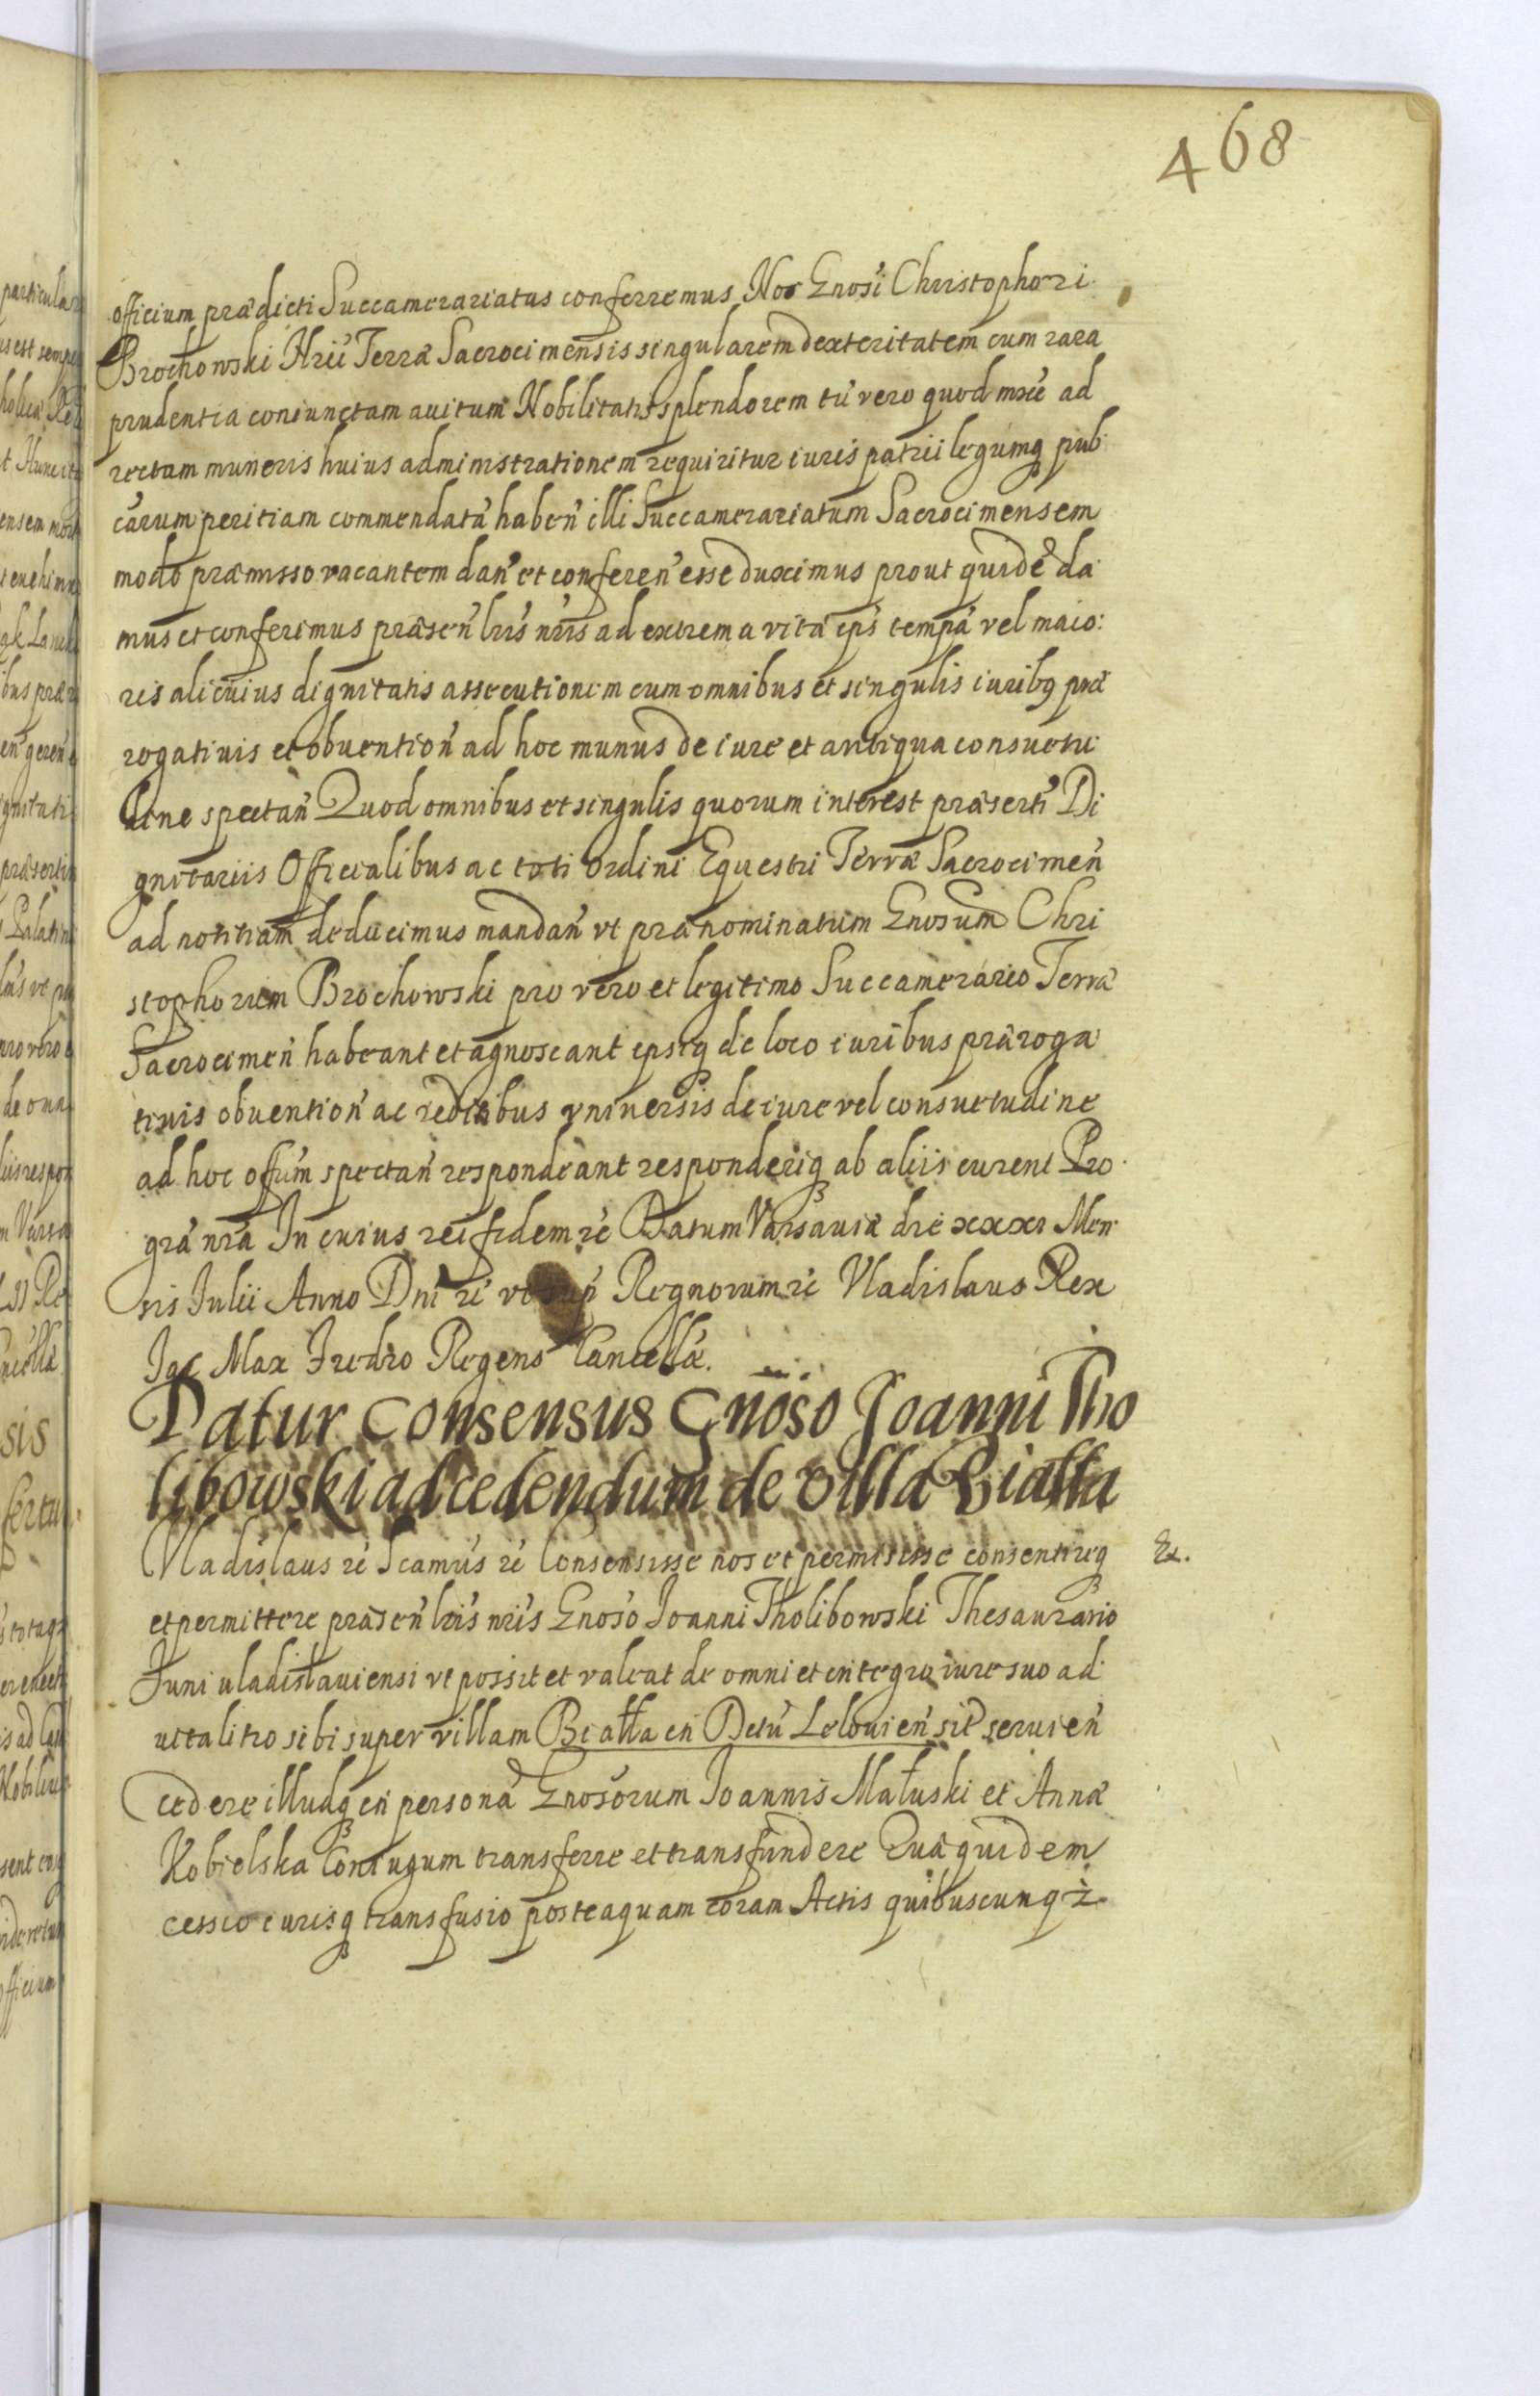 468
officium prædicti Succamerariatus conferremus Nos Gnosi Christophori
Brochowski Hrii Terræ Sacrocimensis singularem dexteritatem cum rara
prudentia coniunctam auitum Nobilitatis splendorem tu vero quod mxe ad
rectam muneris huius administrationem requiritur iuris patrii legumq pub
carum peritiam commendata haben illi Succamerariatum Sacrocimensem
modo præmisso vacantem dan et conferen esse duximus prout quide da
mus et conferimus præsen lris nris ad extrema vitæ ips tempa vel maio:
ris alicuius dignitatis assecutionem cum omnibus et singulis iuribq præ
rogatiuis et obuention ad hoc munus de iure et antiqua consuetu
dine spectan Quod omnibus et singulis quorum interest præserti Di
gnitariis Officialibus ac toti Ordini Equestri Terræ Sacrocimen
ad notitiam deducimus mandan vt prænominatum Gnosum Chri
stophorum Brochowski pro vero et legitimo Succamerario Terræ
Sacrocimen habeant et agnoscant ipsiq de loco iuribus præroga
tiuis obuention ac reditibus vniuersis de iure vel consuetudine
ad hoc offum spectan respondeant responderiq ab aliis curent Pro
gra nra In cuius rei fidem rc Datum Varsauiæ die xxxi Men
sis Iulii Anno Dni rc vt sup Regnorum rc Vladislaus Rex
Iac Max Fredro Regens Cancellæ.
Datur Consensus Gnoso Joanni Tho
libowski ad cedendum de villa Biatta
Vladislaus rc Scamus rc Consensisse nos et permisisse consentireq
Ex.
et permittere præsen lris nris Gnoso Joanni Tholibowski Thesaurario
Iuniuladislauiensi vt possit et valeat de omni et integro iure suo ad
uitalitio sibi super villam Biatta in Dctu Lelouien sit seruien
cedere illudq in persona Gnosorum Joannis Małuski et Annæ
Kobielska Coniugum transferre et transfundere Quæ quidem
cessio iurisq transfusio posteaquam coram Actis quibuscunq r.